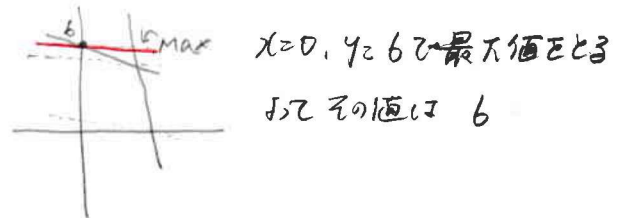 6
MAX
x=0, y=6で最大値をとる
よって その値は 6